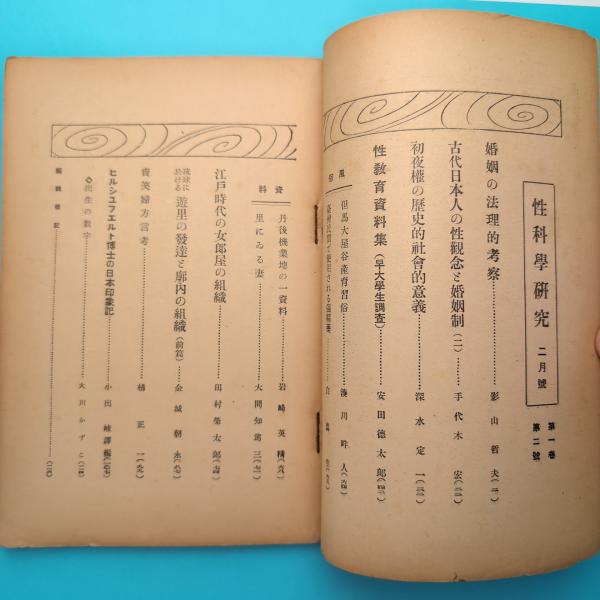 性科學硏究 二月號
第一卷
第二號
婚姻の法理的考察 影山哲夫
古代日本人の性觀念と婚姻制(二) 手代木宏
初夜權の歷史的社會的意義 深水定一
性敎育資料集(早大學生調査) 安田德太郎
風俗
但馬大屋谷産育習俗 湊川畔人
資料
丹後機業地の一資料 岩崎英精
里にゐる妻 大間知篤三
江戶時代の女郎屋の組織 田村榮太郎
琉球に於ける遊里の發達と廓內の組織(前篇) 金城朝永
賣笑婦方言考 橘正一
ヒルシユフエルト博士の日本印象記 小出
◇出生の數字 大川かずこ
編輯後記